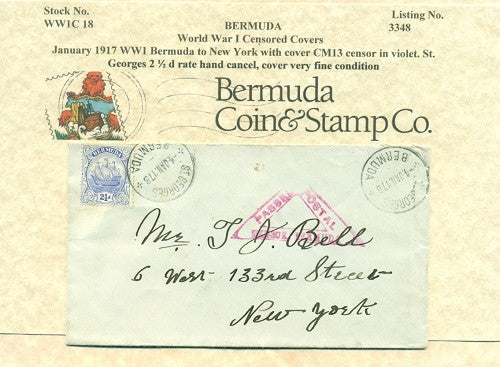 Stock No.
WW1C 18
BERMUDA
World War I Censored Covers
Listing No.
3348
January 1917 WW1 Bermuda to New York with cover CM13 censor in violet. St.
Georges 2 ½ d rate hand cancel, cover very fine condition
Bermuda
Coin&Stamp Co.
BERMUDA
2½d
ST. GEORGES
BERMUDA
ST. GEORGES
BERMUDA
PASSED
POSTAL
Mr. T. J. Bell
6 West 133rd Street
New York